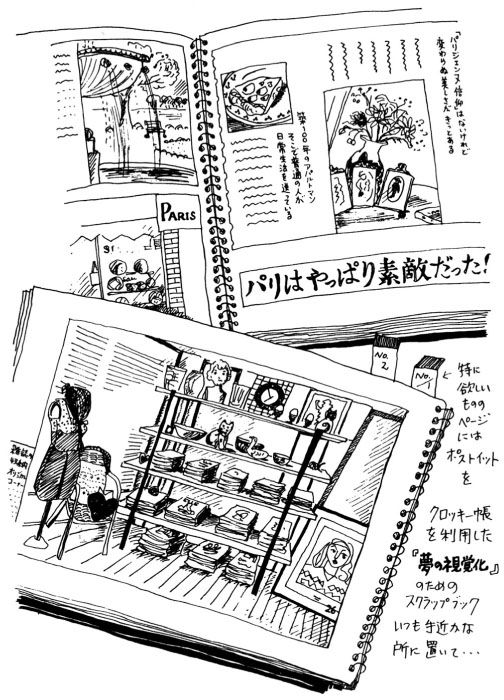 「パリジェンヌ信仰」はないけれど
変わらぬ美しさがきっとある
築100年のアパルトマン
そこで普通の人が
日常生活を送っている
PARIS
パリはやっぱり素敵だった!
No.2
No.1
←特に
欲しい
ものの
ページ
には
ポストイット
を
クロッキー帳
を利用した
『夢の視覚化』
のための
スクラップブック
いつも手近かな
所に置いて・・・
26